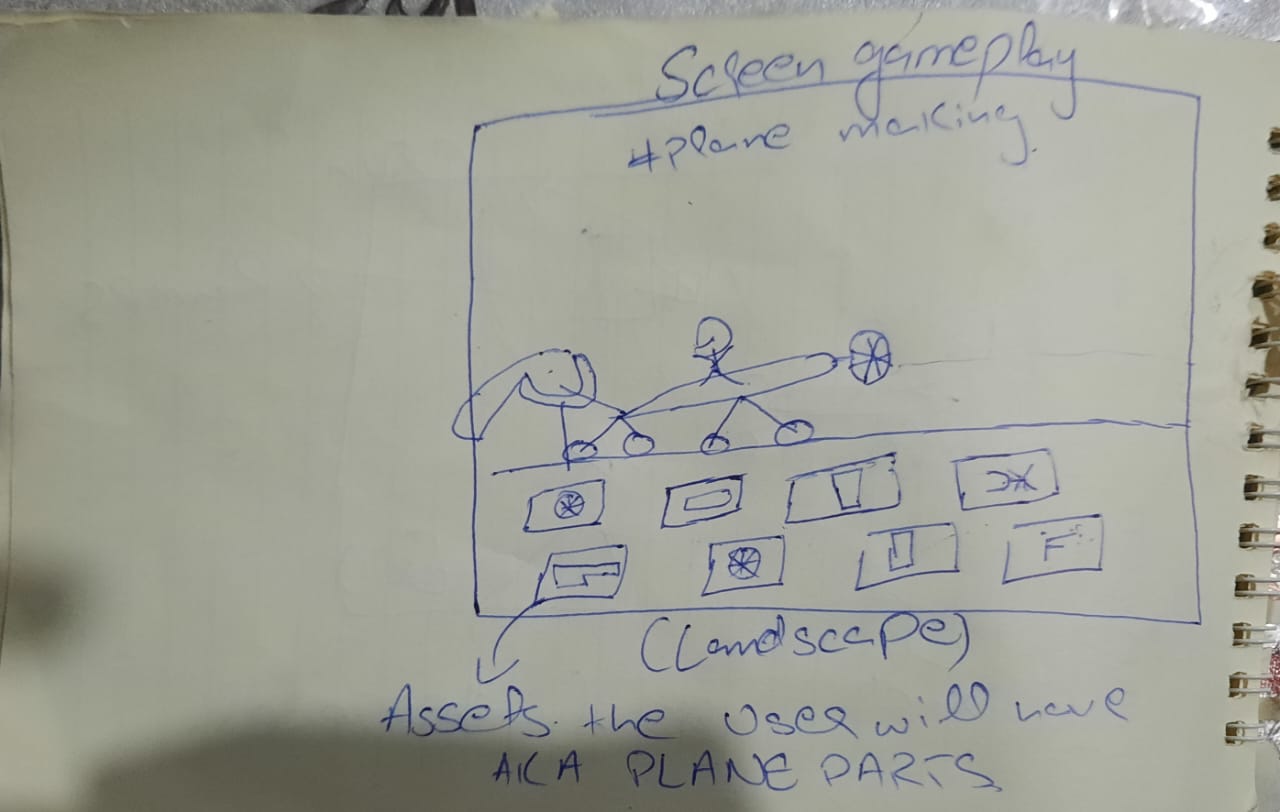 Screen gameplay
#Plane making.
F
(Landscape)
Assets the user will have
AKA PLANE PARTS